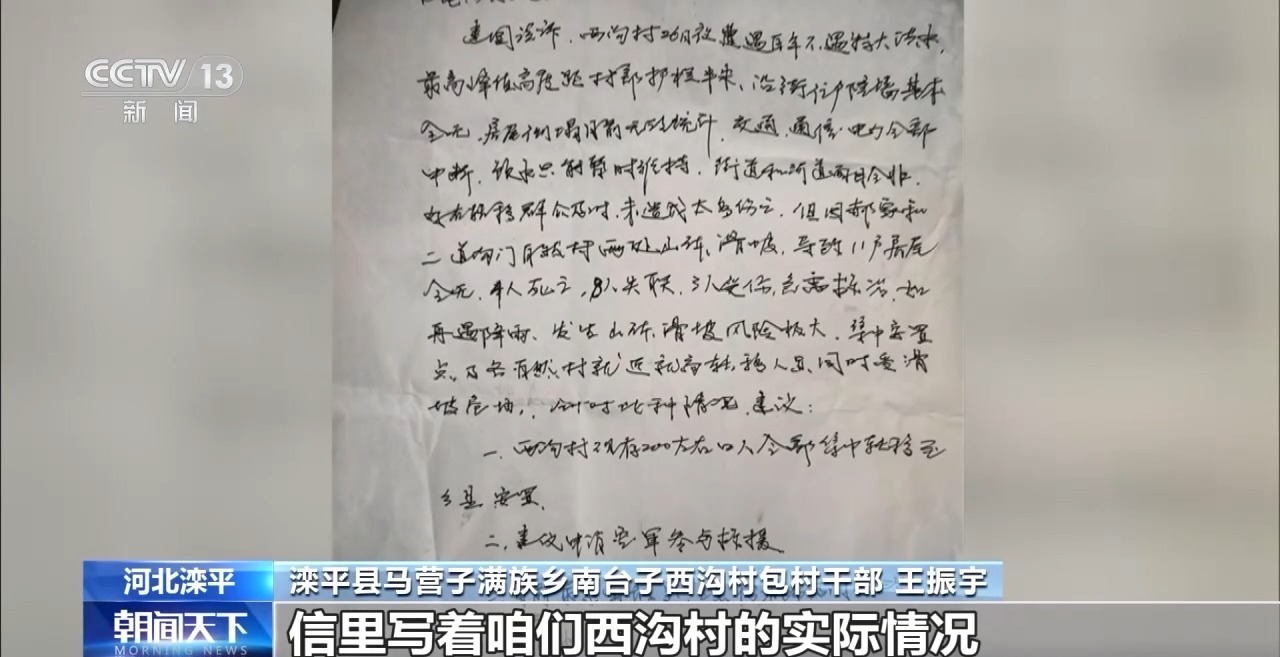 CCTV 13
新闻
建国诠诉，西沟村26日夜遭遇百年不遇特大洪水，
最高峰值高度距村部护栏半米、沿街住户院墙基本
全无，房屋倒塌目前无法统计，交通、通信、电力全部
中断，饮水只能暂时维持，街道和河道面目全非，
转移群众及时，未造成太多伤亡，但因郝家和
二道沟门自然村两处山体滑坡，导致11户房屋
全无，4人死亡，8人失联，3人受伤，急需救治，如
再遇降雨、发生山体滑坡风险极大，集中安置
点及各自然村就近就高转移人员同时受滑
坡危场，针对此种情况，建议：
一、西沟村现存200左右口人全部集中转移至
乡县安置，
二、建议申请空军参与救援
河北滦平
滦平县马营子满族乡南台子西沟村包村干部 王振宇
朝闻天下
MORNING NEWS
信里写着咱们西沟村的实际情况